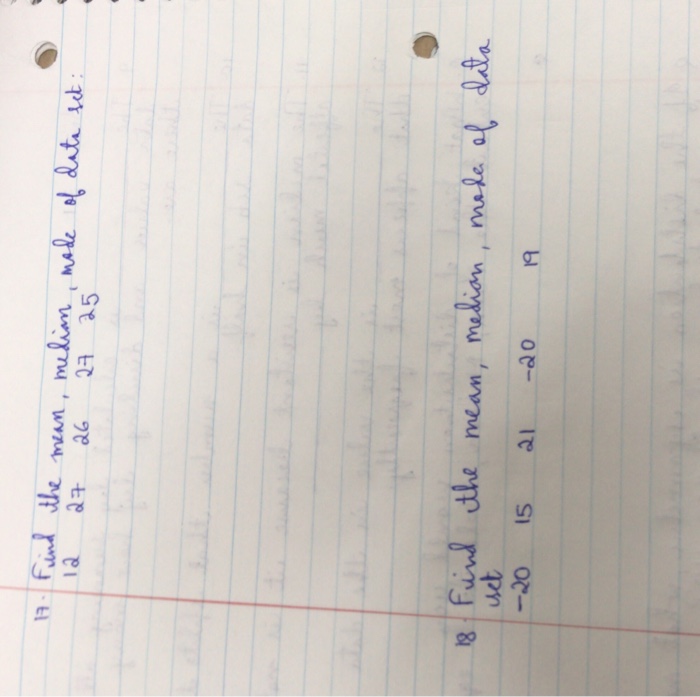 17. Find the mean, median, mode of data set:
12 27 26 27 25
18. Find the mean, median, mode of data
set
-20 15 21 -20 19